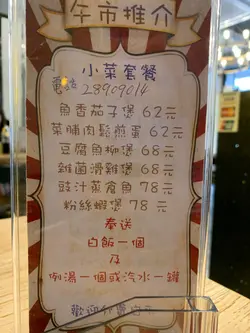 午市推介
小菜套餐
電話 28909014
魚香茄子煲 62元
菜脯肉鬆煎蛋 62元
豆腐魚柳煲 68元
雜菌滑雞煲 68元
豉汁蒸倉魚 78元
粉絲蝦煲 78元
奉送
白飯一個
及
例湯一個或汽水一罐
歡迎